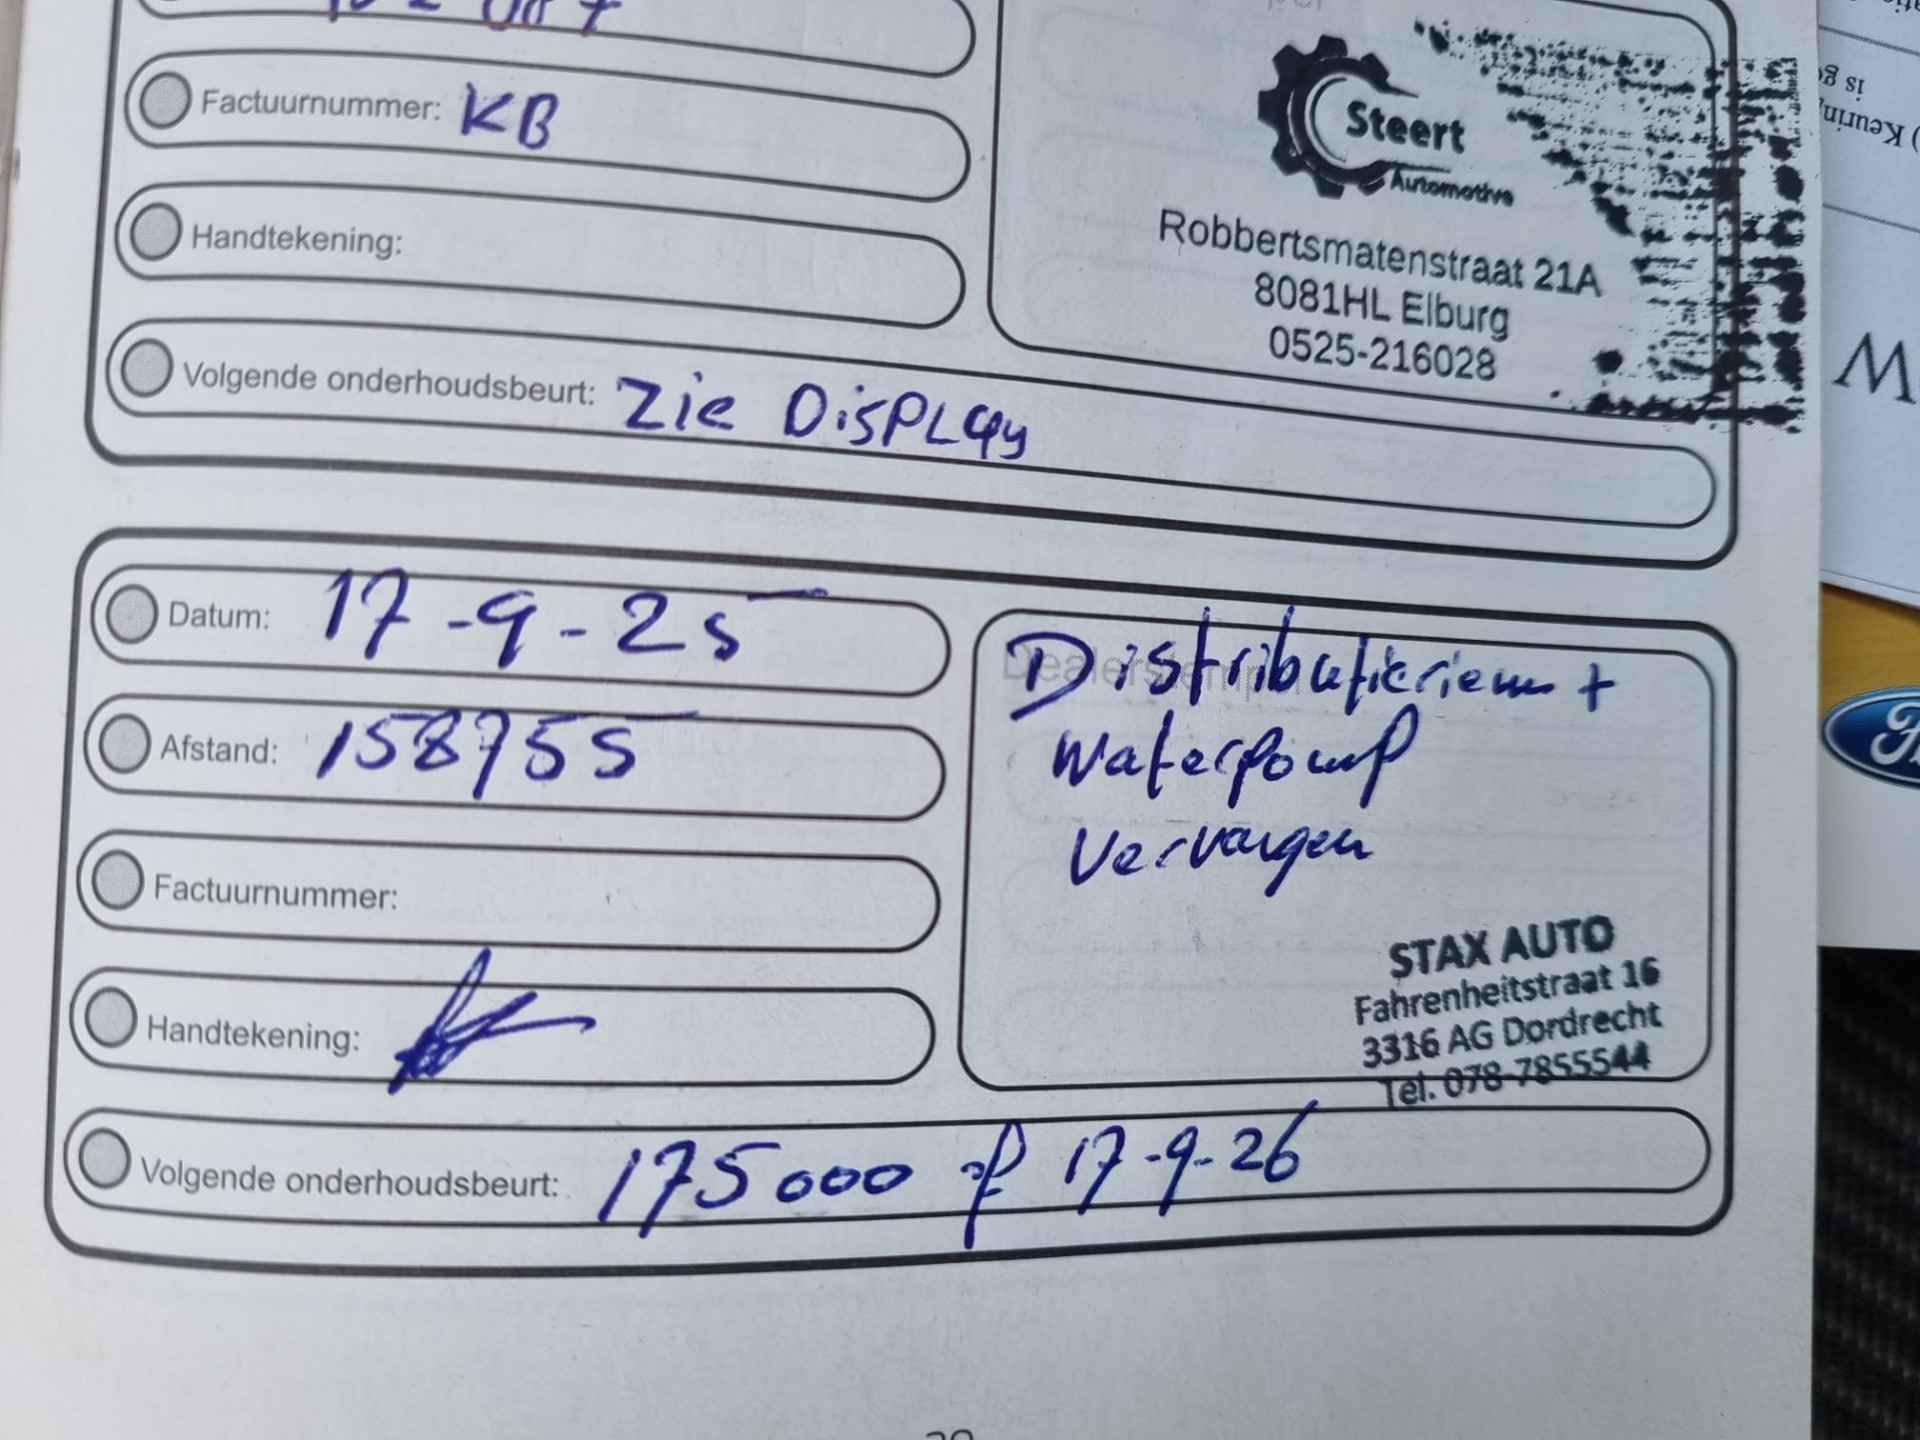 Factuurnummer: KB
Handtekening:
Volgende onderhoudsbeurt: Zie DisPLay
Steert
Automotive
Robbertsmatenstraat 21A
8081HL Elburg
0525-216028
Datum: 17-9-25
Afstand: 158755
Factuurnummer:
Handtekening:
Volgende onderhoudsbeurt: 175000 of 17-9-26
Dealerstempel
Distributieriem +
Waterpomp
Vervangen
STAX AUTO
Fahrenheitstraat 16
3316 AG Dordrecht
Tel. 078-7855544
is
) Keuring
W